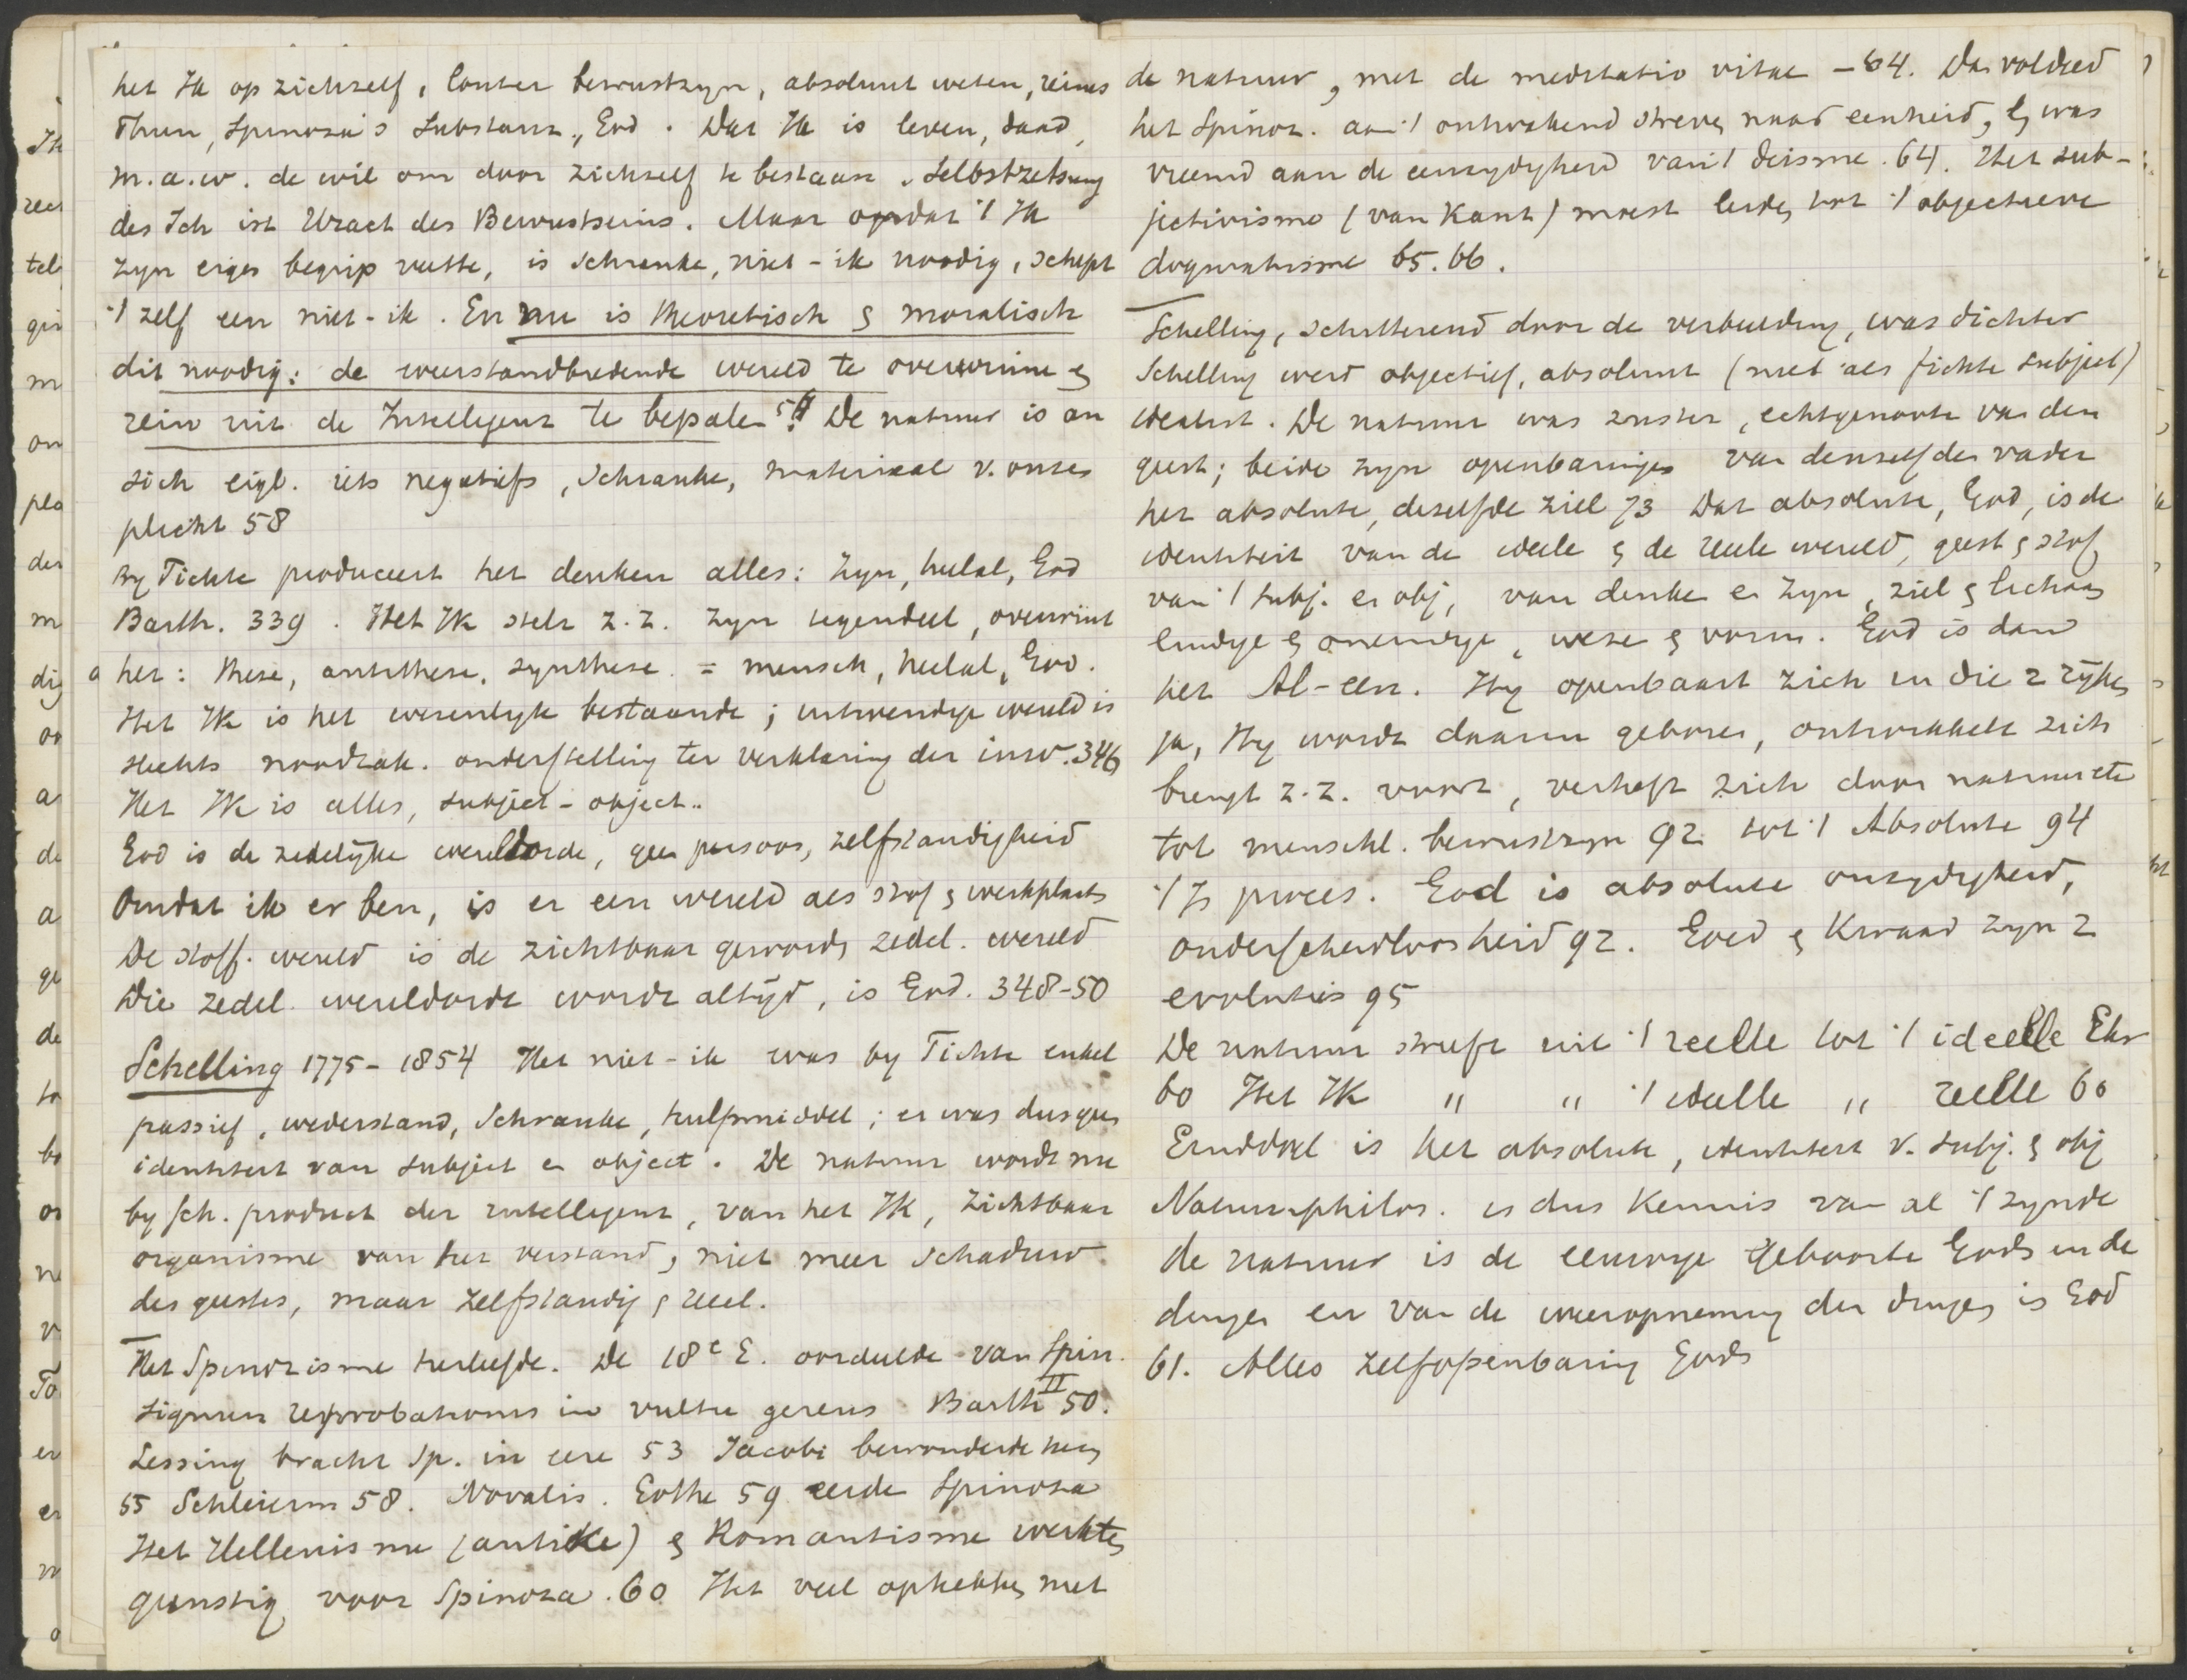 het Ik op zichzelf, louter bewustzyn, absoluut weten, reines
Thun, Spinoza's Substanz, God. Dat Ik is leven, daad,
m.a.w. de wil om door zichzelf te bestaan. Selbstzetsung
des Ich ist Uract des Bewustseins. Maar opdat 't Ik
zyn eigen begrip vatte, is Schranke, niet-ik noodig, schept
't zelf een niet-ik. En nu is theoretisch & moralisch
dit noodig: de weerstandbiedende wereld te overwinnen &
rein uit de Intelligenz te bepalen. De natuur is an
sich eigl. iets negatiefs, Schranke, materiaal v. onzen
plicht 58
By Fichte produceert het denken alles: zyn, heelal, God
Barth. 339. Het Ik stelt z.z. zyn tegendeel, overwint
het: these, antithese, synthese = mensch, heelal, God.
Het Ik is het wezenlyk bestaande; uitwendige wereld is
slechts noodzak. onderstelling ter verklaring der inw. 346
Het Ik is alles, subject-object.
God is de zedelyke wereldorde, geen persoon, zelfstandigheid
Omdat ik er ben, is er een wereld als stof & werkplaats
De stoff. wereld is de zichtbaar geworden zedel. wereld
Die zedel. wereldorde wordt altyd, is God. 348-50
Schelling 1775-1854 Het niet-ik was by Fichte enkel
passief, wederstand, Schranke, hulpmiddel; er was dus geen
identiteit van subject en object. De natuur wordt nu
by Sch. product der intelligenz, van het Ik, zichtbaar
organisme van het verstand, niet meer schaduw
des geestes, maar zelfstandig & reëel.
Het Spinozisme herleefde. De 18e E. oordeelde van Spin.
signum reprobationis in vultu gerens Barth II 50.
Lessing bracht Sp. in eere 53 Jacobi bewonderde hem
55 Schleierm 58. Novalis. Göthe 59 eerde Spinoza
Het Hellenisme (antike) & Romantisme werkten
gunstig voor Spinoza. 60 Het veel ophebben met
de natuur, met de meditatio vitae - 64. Dan voldeed
het Spinoz. aan 't ontwakend streven naar eenheid, & was
vreemd aan de eenzydigheid van 't deisme. 64. Het sub-
jectivisme (van Kant) moest leiden tot 't objectieve
dogmatisme 65. 66.
Schelling, schitterend door de verbeelding, was dichter
Schelling werd objectief, absoluut (niet als Fichte subject)
idealist. De natuur was zuster, echtgenoote van den
geest; beide zyn openbaringen van denzelfden vader
het absolute, dezelfde ziel 73 Dat absolute, God, is de
identiteit van de ideële & de reëele wereld, geest & stof,
van 't subj. en obj, van denken en zyn, ziel & lichaam
eindige & oneindige, wezen & vorm. God is dan
het Al-een. Hy openbaart zich in die 2 ryken
ja, Hy wordt daarin geboren, ontwikkelt zich
brengt z.z. voort, verheft zich door natuur etc
tot menschl. bewustzyn 92 tot 't Absolute 94
't Is proces. God is absolute onzydigheid,
onderscheidloosheid 92. Goed & Kwaad zyn 2
evoluties 95
De natuur streeft uit 't reëlle tot 't ideeële
60 Het Ik " " 't ideëlle " reëlle 60
Einddoel is het absolute, identiteit v. subj. & obj
Naturphilos. is dus kennis van al 't zynde
de natuur is de eeuwige geboorte Gods in de
dingen en van de weeropneming der dingen is God
61. Alles zelfopenbaring Gods